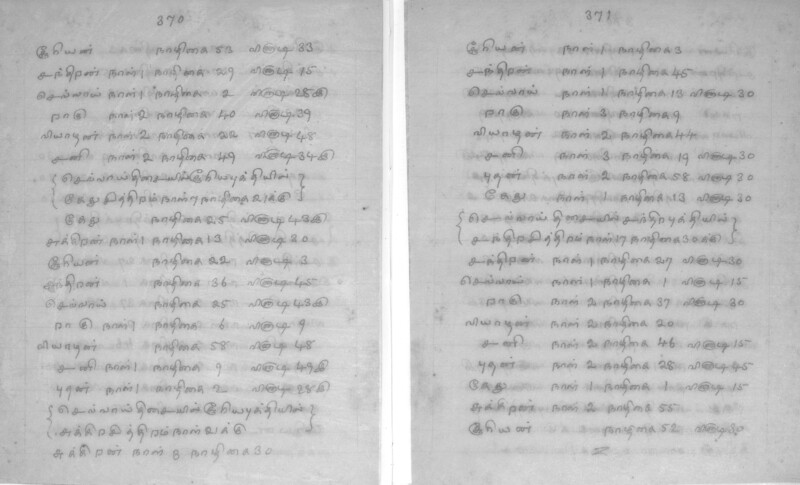 370
சூரியன் நாழிகை 53 விநாடி 33
சந்திரன் நாள் 1 நாழிகை 29 விநாடி 15
செவ்வாய் நாள் 1 நாழிகை 2 விநாடி 28
ராகு நாள் 2 நாழிகை 40 விநாடி 39
வியாழன் நாள் 2 நாழிகை 22 விநாடி 48
சனி நாள் 2 நாழிகை 49 விநாடி 34
செவ்வாய் திசையில்
நாள் 7 நாழிகை
கேது நாழிகை 25 விநாடி 43
சுக்கிரன் நாள் 1 நாழிகை 13 விநாடி 30
சூரியன் நாழிகை 22 விநாடி 3
சந்திரன் நாழிகை 36 விநாடி 45
செவ்வாய் நாழிகை 25 விநாடி 43
ராகு நாள் 1 நாழிகை 6 விநாடி 9
வியாழன் நாழிகை 58 விநாடி 48
சனி நாள் 1 நாழிகை 9 விநாடி 49
புதன் நாள் 1 நாழிகை 2 விநாடி 28
செவ்வாய் திசையில் சூரியபுத்தியில்
நாள்
சுக்கிரன் நாள் 3 நாழிகை 30
371
சூரியன் நாள் 1 நாழிகை 3
சந்திரன் நாள் 1 நாழிகை 45
செவ்வாய் நாள் 1 நாழிகை 13 விநாடி 30
ராகு நாள் 3 நாழிகை 9
வியாழன் நாள் 2 நாழிகை 44
சனி நாள் 3 நாழிகை 19 விநாடி 30
புதன் நாள் 2 நாழிகை 58 விநாடி 30
கேது நாள் 1 நாழிகை 13 விநாடி 30
செவ்வாய் திசையில் சந்திரபுத்தியில்
நாள் 17 நாழிகை 30
சந்திரன் நாள் 1 நாழிகை 27 விநாடி 30
செவ்வாய் நாள் 1 நாழிகை 1 விநாடி 15
ராகு நாள் 2 நாழிகை 37 விநாடி 30
வியாழன் நாள் 2 நாழிகை 20
சனி நாள் 2 நாழிகை 46 விநாடி 15
புதன் நாள் 2 நாழிகை 28 விநாடி 45
கேது நாள் 1 நாழிகை 1 விநாடி 15
சுக்கிரன் நாள் 2 நாழிகை 55
சூரியன் நாழிகை 52 விநாடி 30